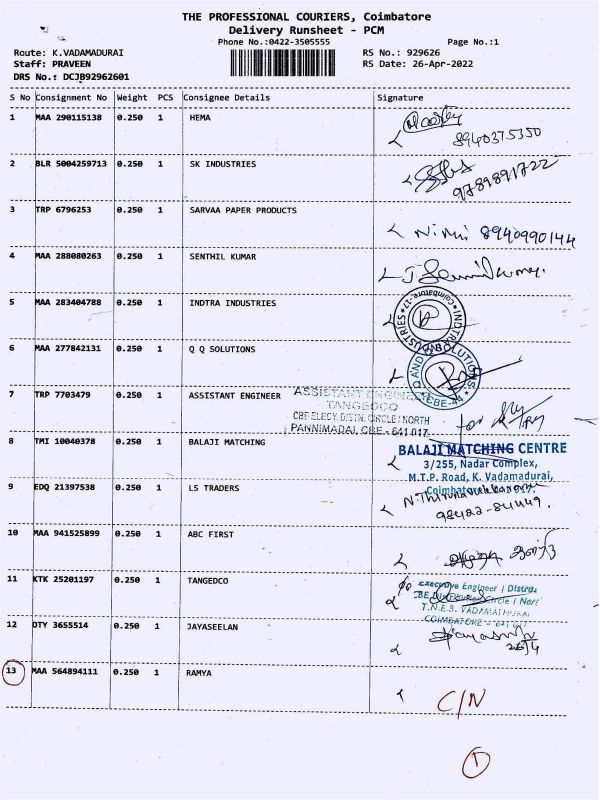 THE PROFESSIONAL COURIERS, Coimbatore
Delivery Runsheet - PCM
Phone No.:0422-3505555
Page No.:1
Route: K.VADAMADURAI
RS No.: 929626
Staff: PRAVEEN
RS Date: 26-Apr-2022
DRS No.: DCJB92962601
S No Consignment No Weight PCS Consignee Details Signature
1 MAA 290115138 0.250 1 HEMA
8940375350
2 BLR 5004259713 0.250 1 SK INDUSTRIES
9789891722
3 TRP 6796253 0.250 1 SARVAA PAPER PRODUCTS
8940990144
4 MAA 288080263 0.250 1 SENTHIL KUMAR
5 MAA 283404788 0.250 1 INDTRA INDUSTRIES
6 MAA 277842131 0.250 1 Q Q SOLUTIONS
7 TRP 7703479 0.250 1 ASSISTANT ENGINEER
ASSISTANT ENGINEER
TANGEDCO
CBE ELECY. DISTN. CIRCLE / NORTH
PANNIMADAI, CBE - 641 017
for
8 TMI 10040378 0.250 1 BALAJI MATCHING
BALAJI MATCHING CENTRE
3/255, Nadar Complex,
M.T.P. Road, K. Vadamadurai,
Coimbatore
9 EDQ 21397538 0.250 1 LS TRADERS
98422-84449.
10 MAA 941525899 0.250 1 ABC FIRST
11 KTK 25201197 0.250 1 TANGEDCO
Executive Engineer / Distrn
Circle / Nort
T.N.E.B. VADAMATHURAI
COIMBATORE - 641 017
12 OTY 3655514 0.250 1 JAYASEELAN
26/4
13 MAA 564894111 0.250 1 RAMYA
C/N
1